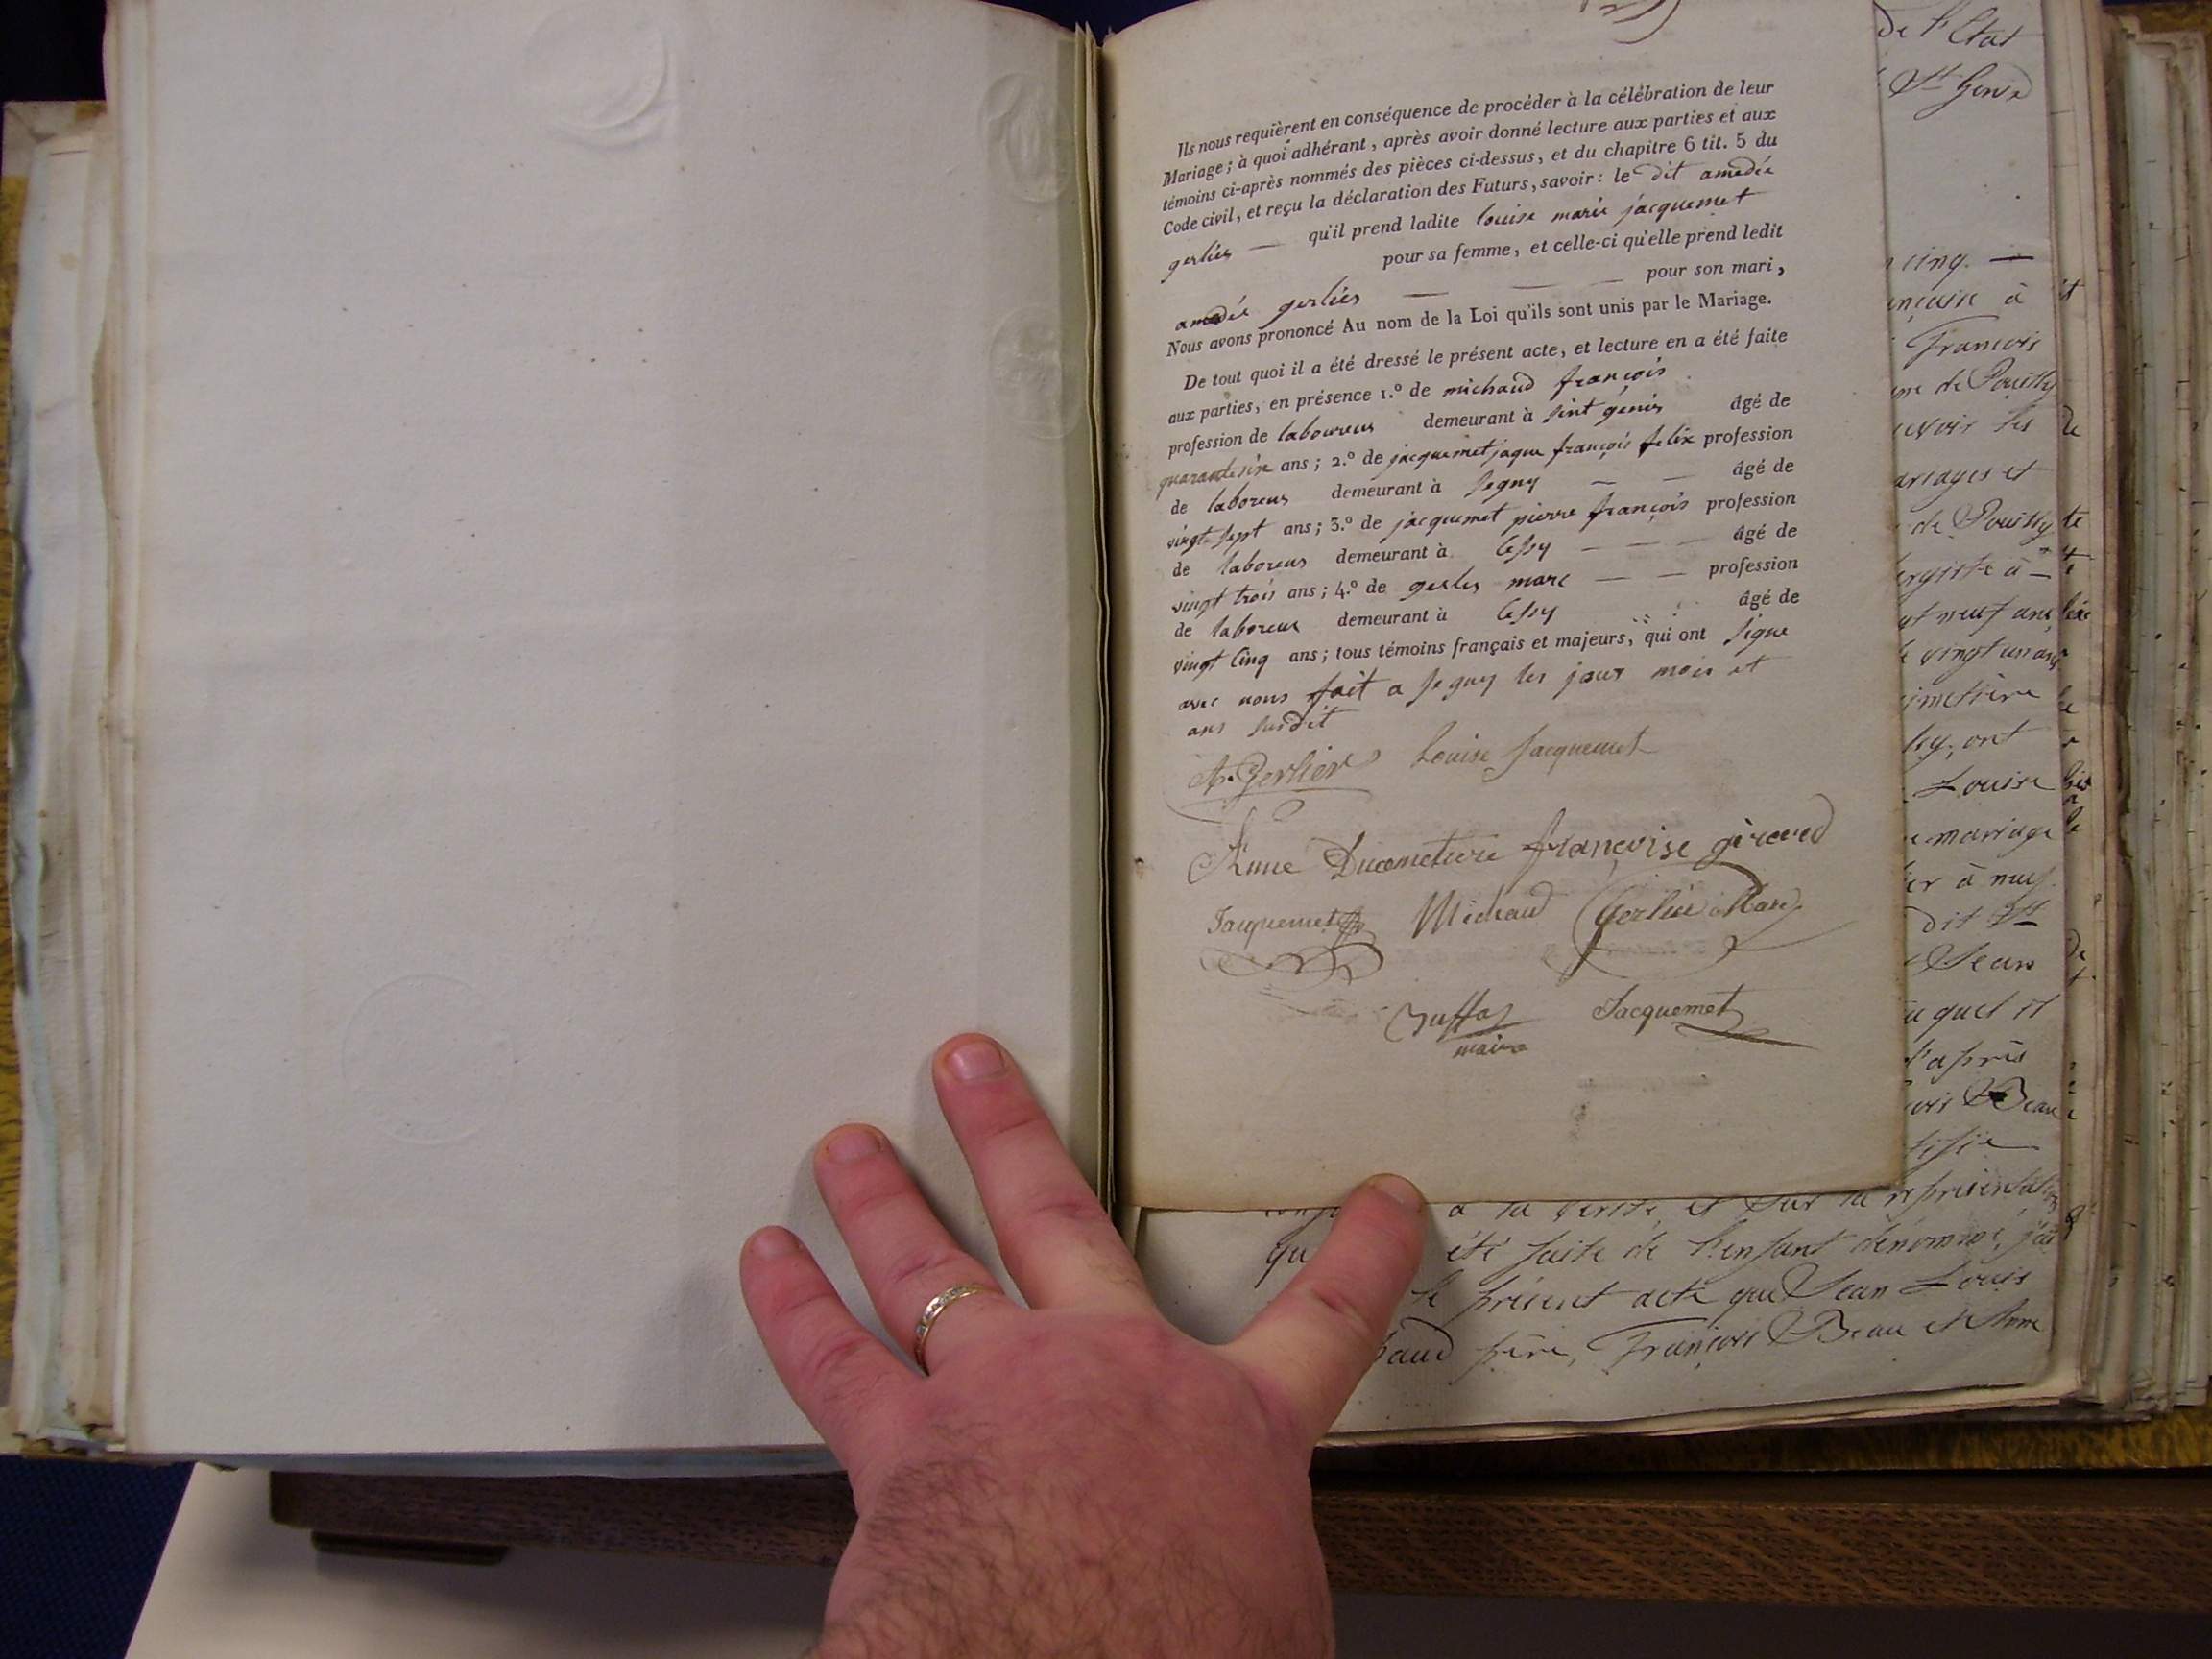 Ils nous requièrent en conséquence de procéder à la célébration de leur
Mariage; à quoi adhérant, après avoir donné lecture aux parties et aux
témoins ci-après nommés des pièces ci-dessus, et du chapitre 6 tit. 5 du
Code civil, et reçu la déclaration des Futurs, savoir: le dit amedée
gerlier — qu'il prend ladite louise marie jacquemet
pour sa femme, et celle-ci qu'elle prend ledit
amedée gerlier — — — pour son mari,
Nous avons prononcé Au nom de la Loi qu'ils sont unis par le Mariage.
De tout quoi il a été dressé le présent acte, et lecture en a été faite
aux parties, en présence 1.º de michaud françois
profession de laboureur demeurant à sint genis âgé de
quarantesix ans; 2.º de jacquemet jaque françois felix profession
de laboreur demeurant à segny — — âgé de
vingt-sept ans; 3.º de jacquemet pierre françois profession
de laboreur demeurant à Cessy — — — âgé de
vingt trois ans; 4.º de gerlier marc — — profession
de laboreur demeurant à Cessy âgé de
vingt cinq ans; tous témoins français et majeurs, qui ont signe
avec nous fait a segny les jour mois et
ans susdit
A. Gerlier Louise Jacquemet
Ducimetiere françoise girod
Jacquemet Michaud Gerlier Marc
maire Jacquemet
de l'Etat
St Genis
cinq. —
à
François
de Pouilly
ariages et
de Pouilly
neuf ans
vingt un ans
ont
Louise
mariage
dit
Jean
quel il
d'après
Beau
a la verité et sur la représentation
qu été faite de l'enfant dénommé, j'ai
le présent acte que Jean Louis
père, François Beau et Anne